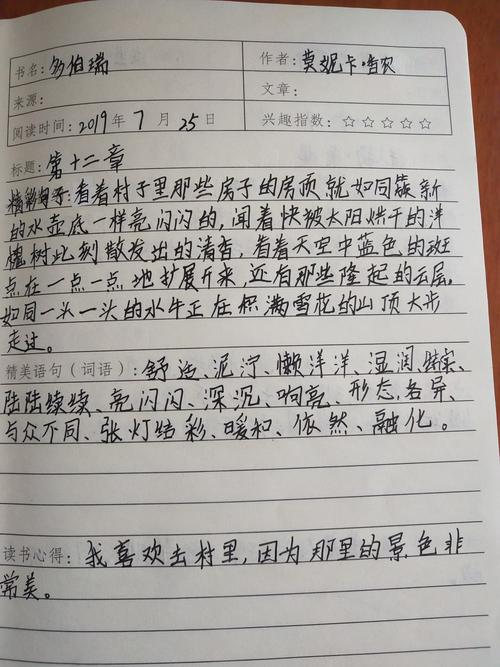 书名:多伯瑞 作者:莫妮卡·哈农
来源: 文章:
阅读时间:2019年7月25日 兴趣指数:☆☆☆☆☆
标题:第十二章
看着村子里那些房子的房顶就如同簇新
的水壶底一样亮闪闪的,闻着快被太阳烘干的洋
槐树此刻散发出的清香,看着天空中蓝色的斑
点在一点一点地扩展开来,还有那些隆起的云层。
如同一头一头的水牛正在积满雪花的山顶大步
走过。
精美语句(词语):舒适、泥泞、懒洋洋、湿润、结实、
陆陆续续、亮闪闪、深沉、响亮、形态,各异、
与众不同、张灯结彩、暖和、依然、融化。
读书心得:我喜欢去村里,因为那里的景色非
常美。